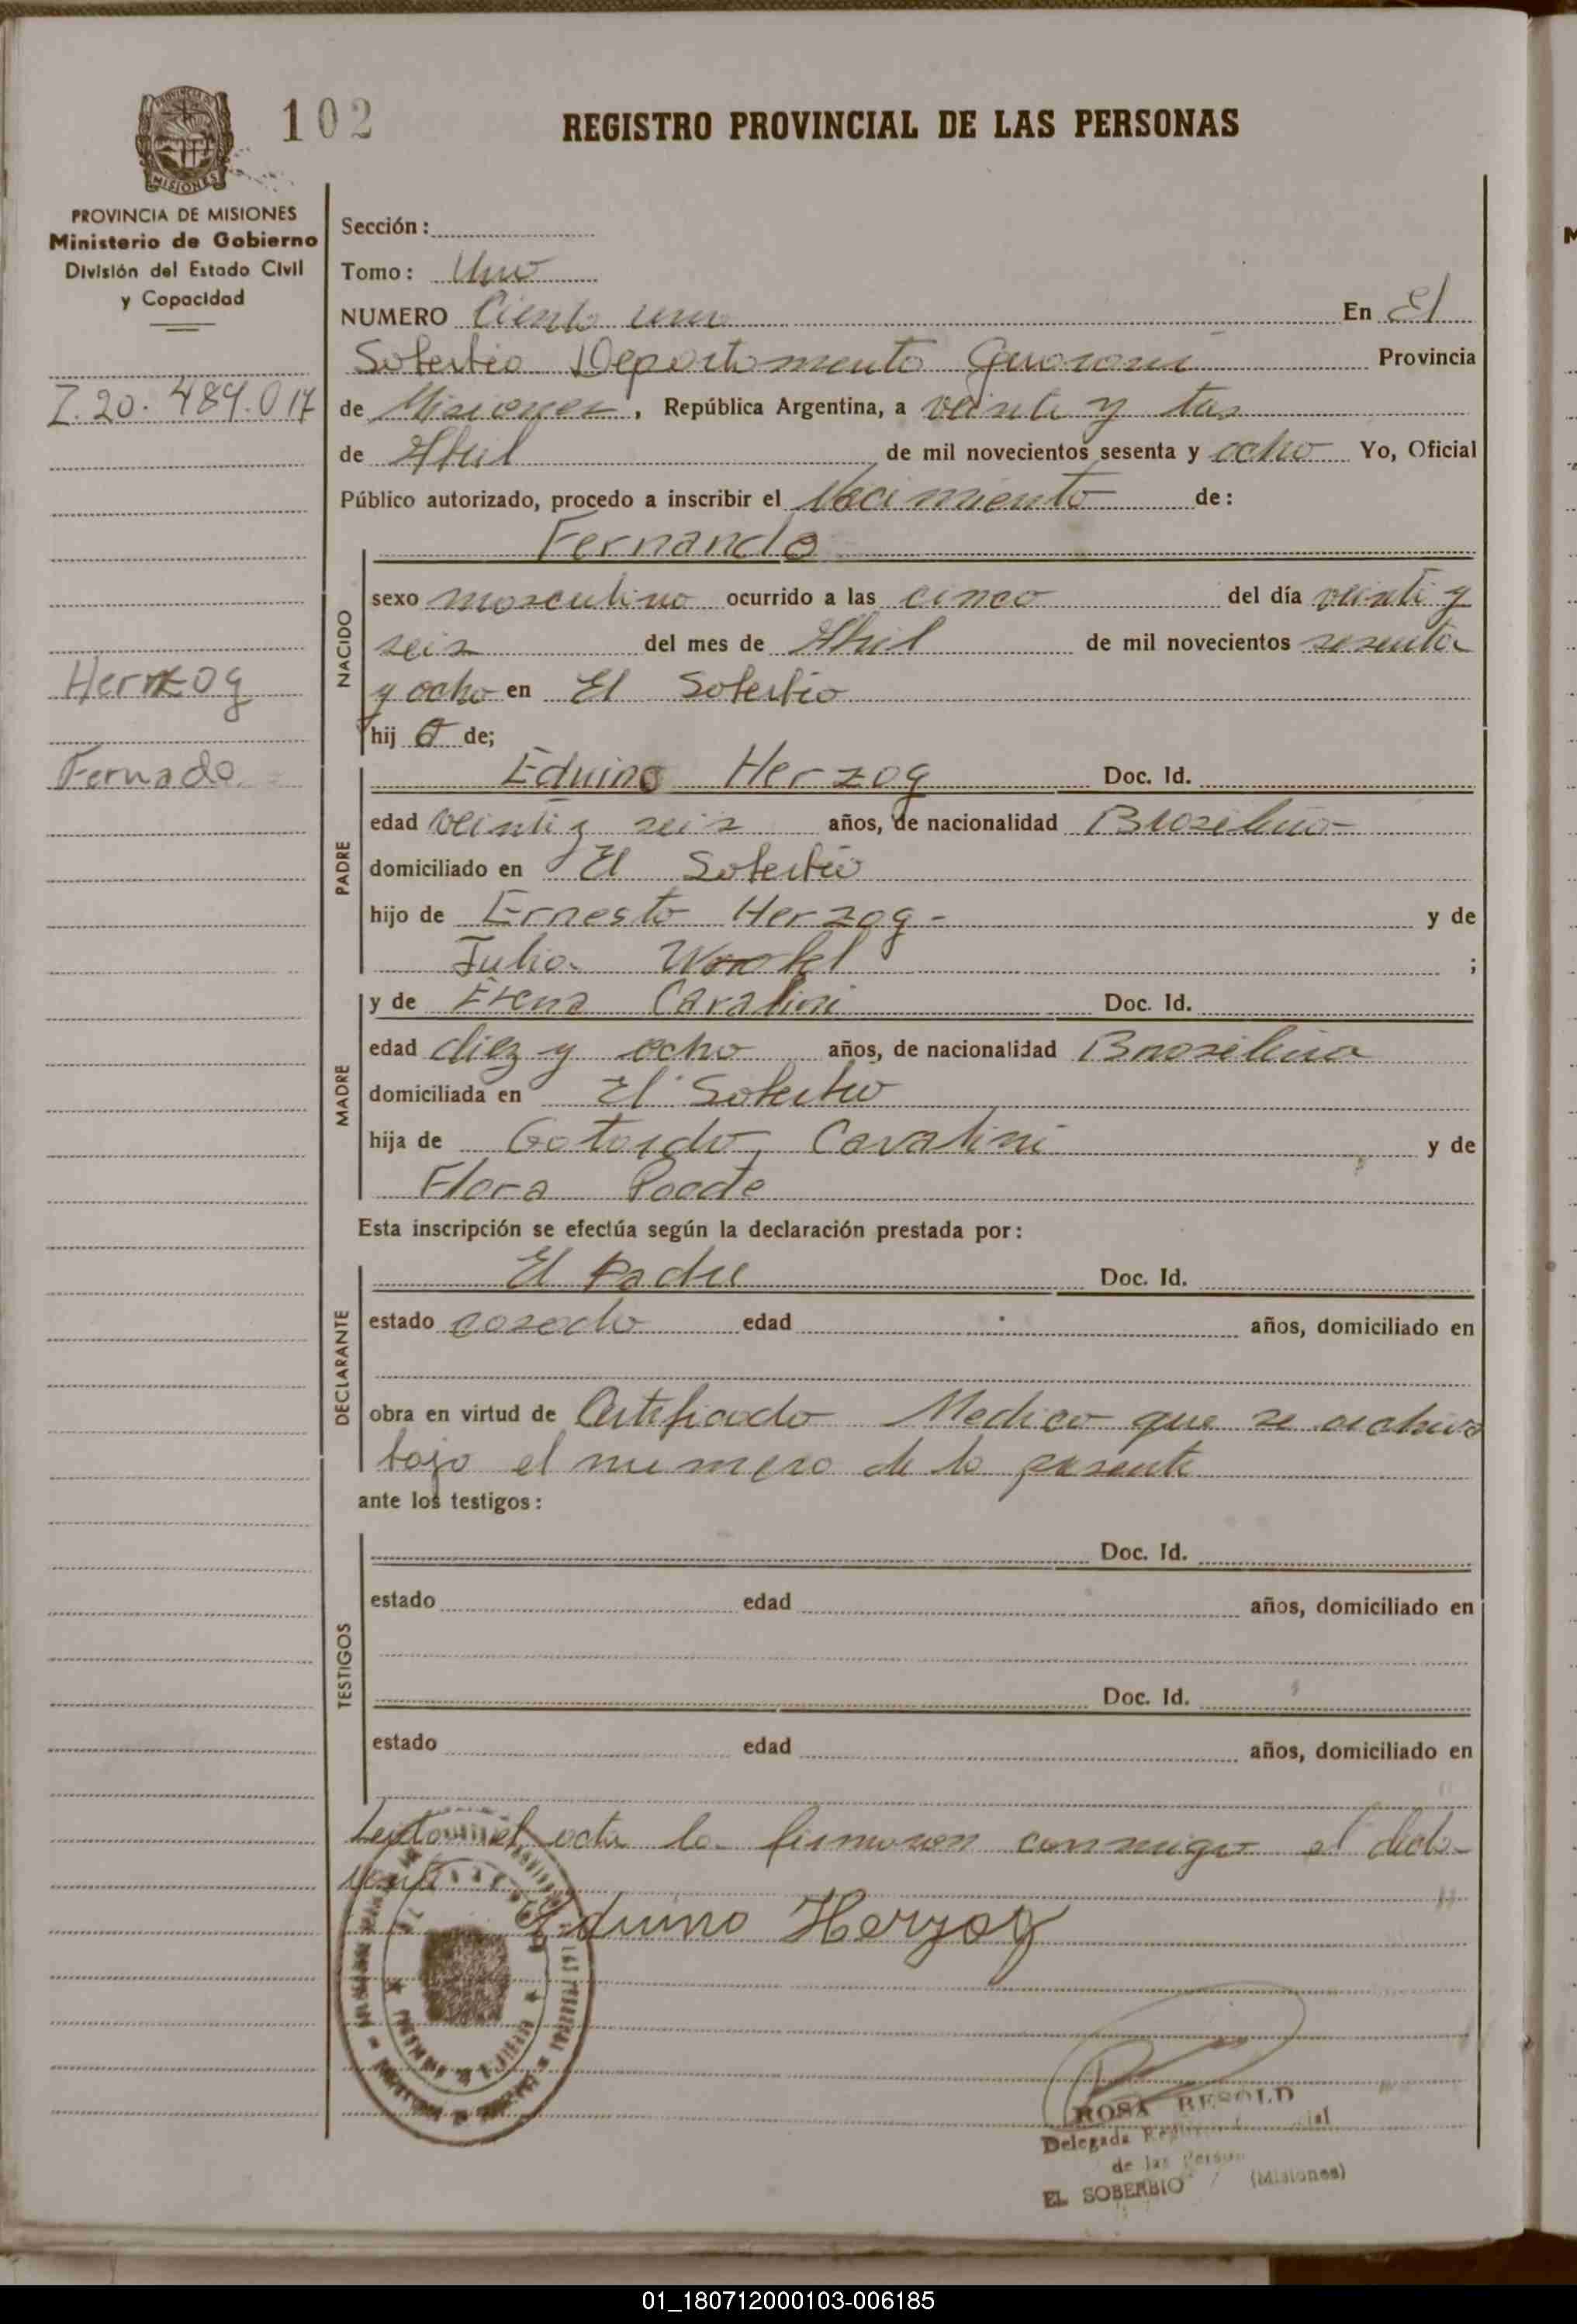 102
REGISTRO PROVINCIAL DE LAS PERSONAS
MISIONES
PROVINCIA DE MISIONES
Ministerio de Gobierno
División del Estado Civil
y Capacidad
I.20.489.017
Herzog
Fernado
Sección:
Tomo: Uno
NUMERO Ciento uno En El
Soberbio Departamento Guarani Provincia
de Misiones, República Argentina, a veinti y tres
de Abril de mil novecientos sesenta y ocho Yo, Oficial
Público autorizado, procedo a inscribir el Nacimiento de:
Fernando
NACIDO
sexo masculino ocurrido a las cinco del día veinti y
seis del mes de Abril de mil novecientos sesenta
y ocho en El Soberbio
hij o de;
PADRE
Eduino Herzog Doc. Id.
edad veinti y seis años, de nacionalidad Brasileño
domiciliado en El Soberbio
hijo de Ernesto Herzog - y de
Julia ;
MADRE
y de Cavalini Doc. Id.
edad diez y ocho años, de nacionalidad Brasileña
domiciliada en El Soberbio
hija de Cavalini y de
Flora
Esta inscripción se efectúa según la declaración prestada por:
DECLARANTE
El Padre Doc. Id.
estado casado edad años, domiciliado en
obra en virtud de Certificado Medico que se archiva
bajo el numero de la presente
ante los testigos:
TESTIGOS
Doc. Id.
estado edad años, domiciliado en
Doc. Id.
estado edad años, domiciliado en
el acta la firmaron conmigo el decla-
rante
Eduino Herzog
ROSA BESOLD
Delegada
de las
EL SOBERBIO (Misiones)
01_180712000103-006185